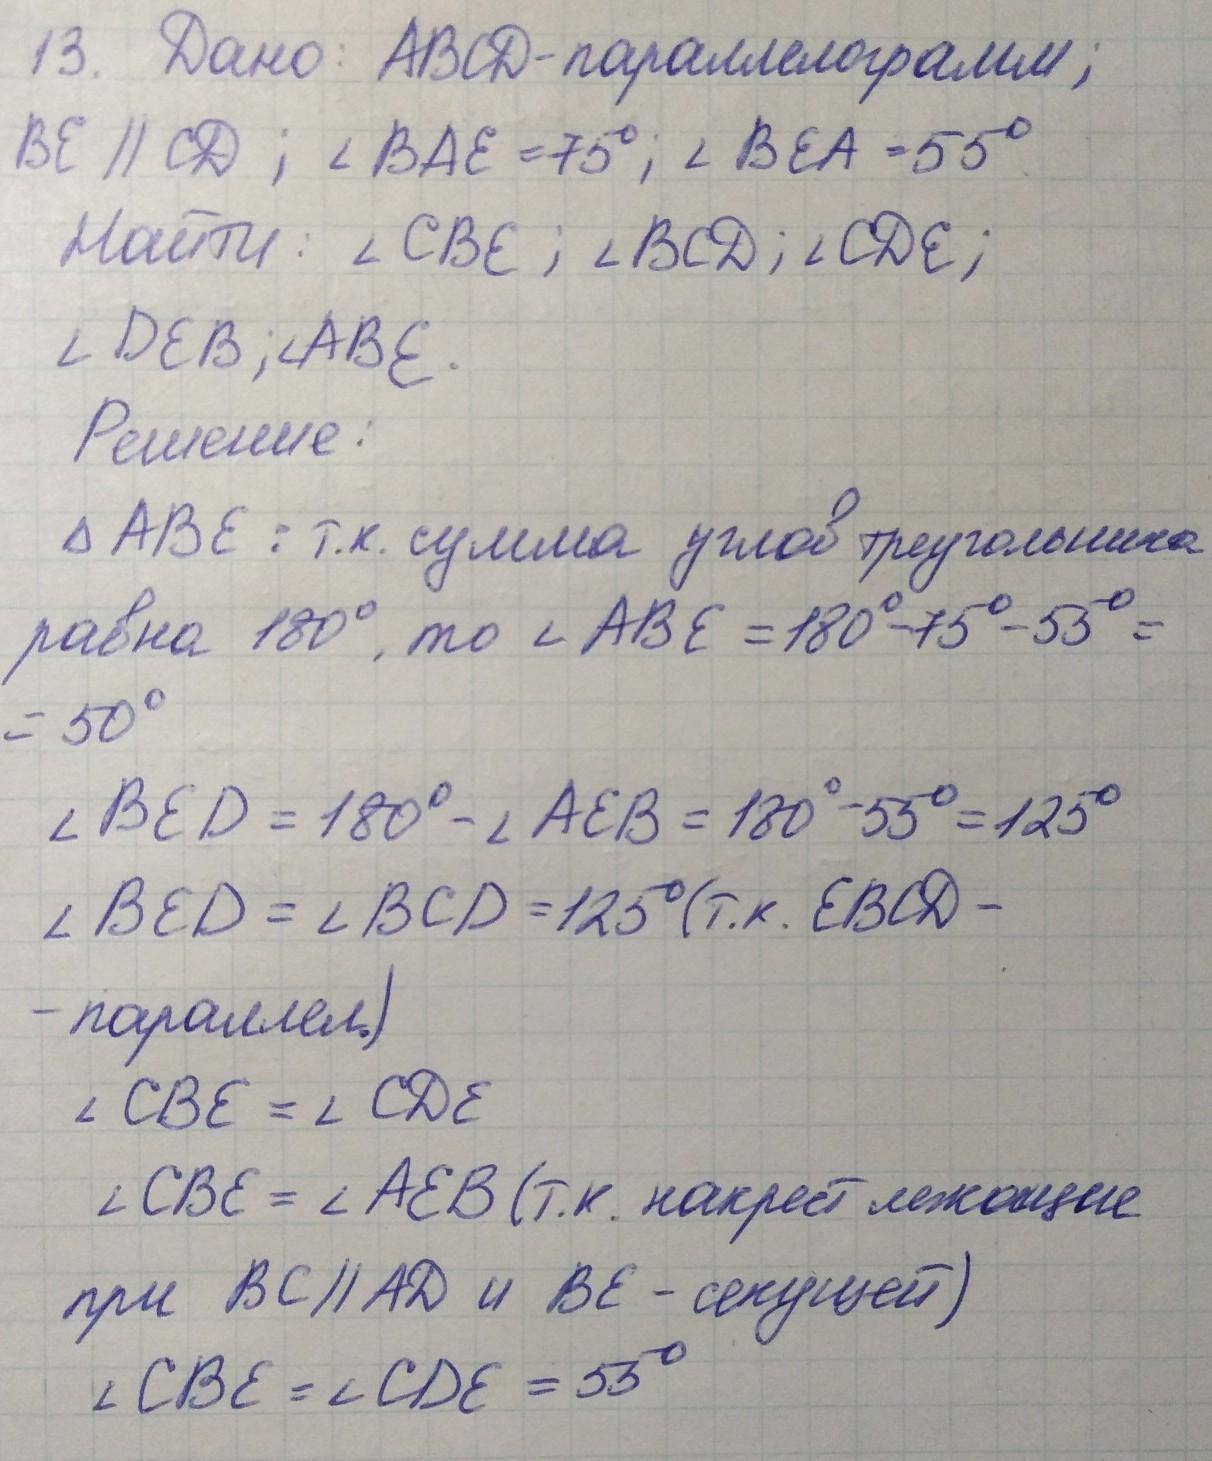 13. Дано: ABCD-параллелограмм;
BE || CD; ∠BAE =75°; ∠BEA =55°
Найти: ∠CBE; ∠BCD; ∠CDE;
∠DEB; ∠ABE.
Решение:
△ABE: т.к. сумма углов треугольника
равна 180°, то ∠ABE =180°-75°-55°=
= 50°
∠BED = 180°-∠AEB = 180°-55°=125°
∠BED = ∠BCD =125°(т.к. EBCD -
- параллел.)
∠CBE = ∠CDE
∠CBE = ∠AEB (т.к. накрест лежащие
при BC || AD и BE - секущей)
∠CBE = ∠CDE = 55°